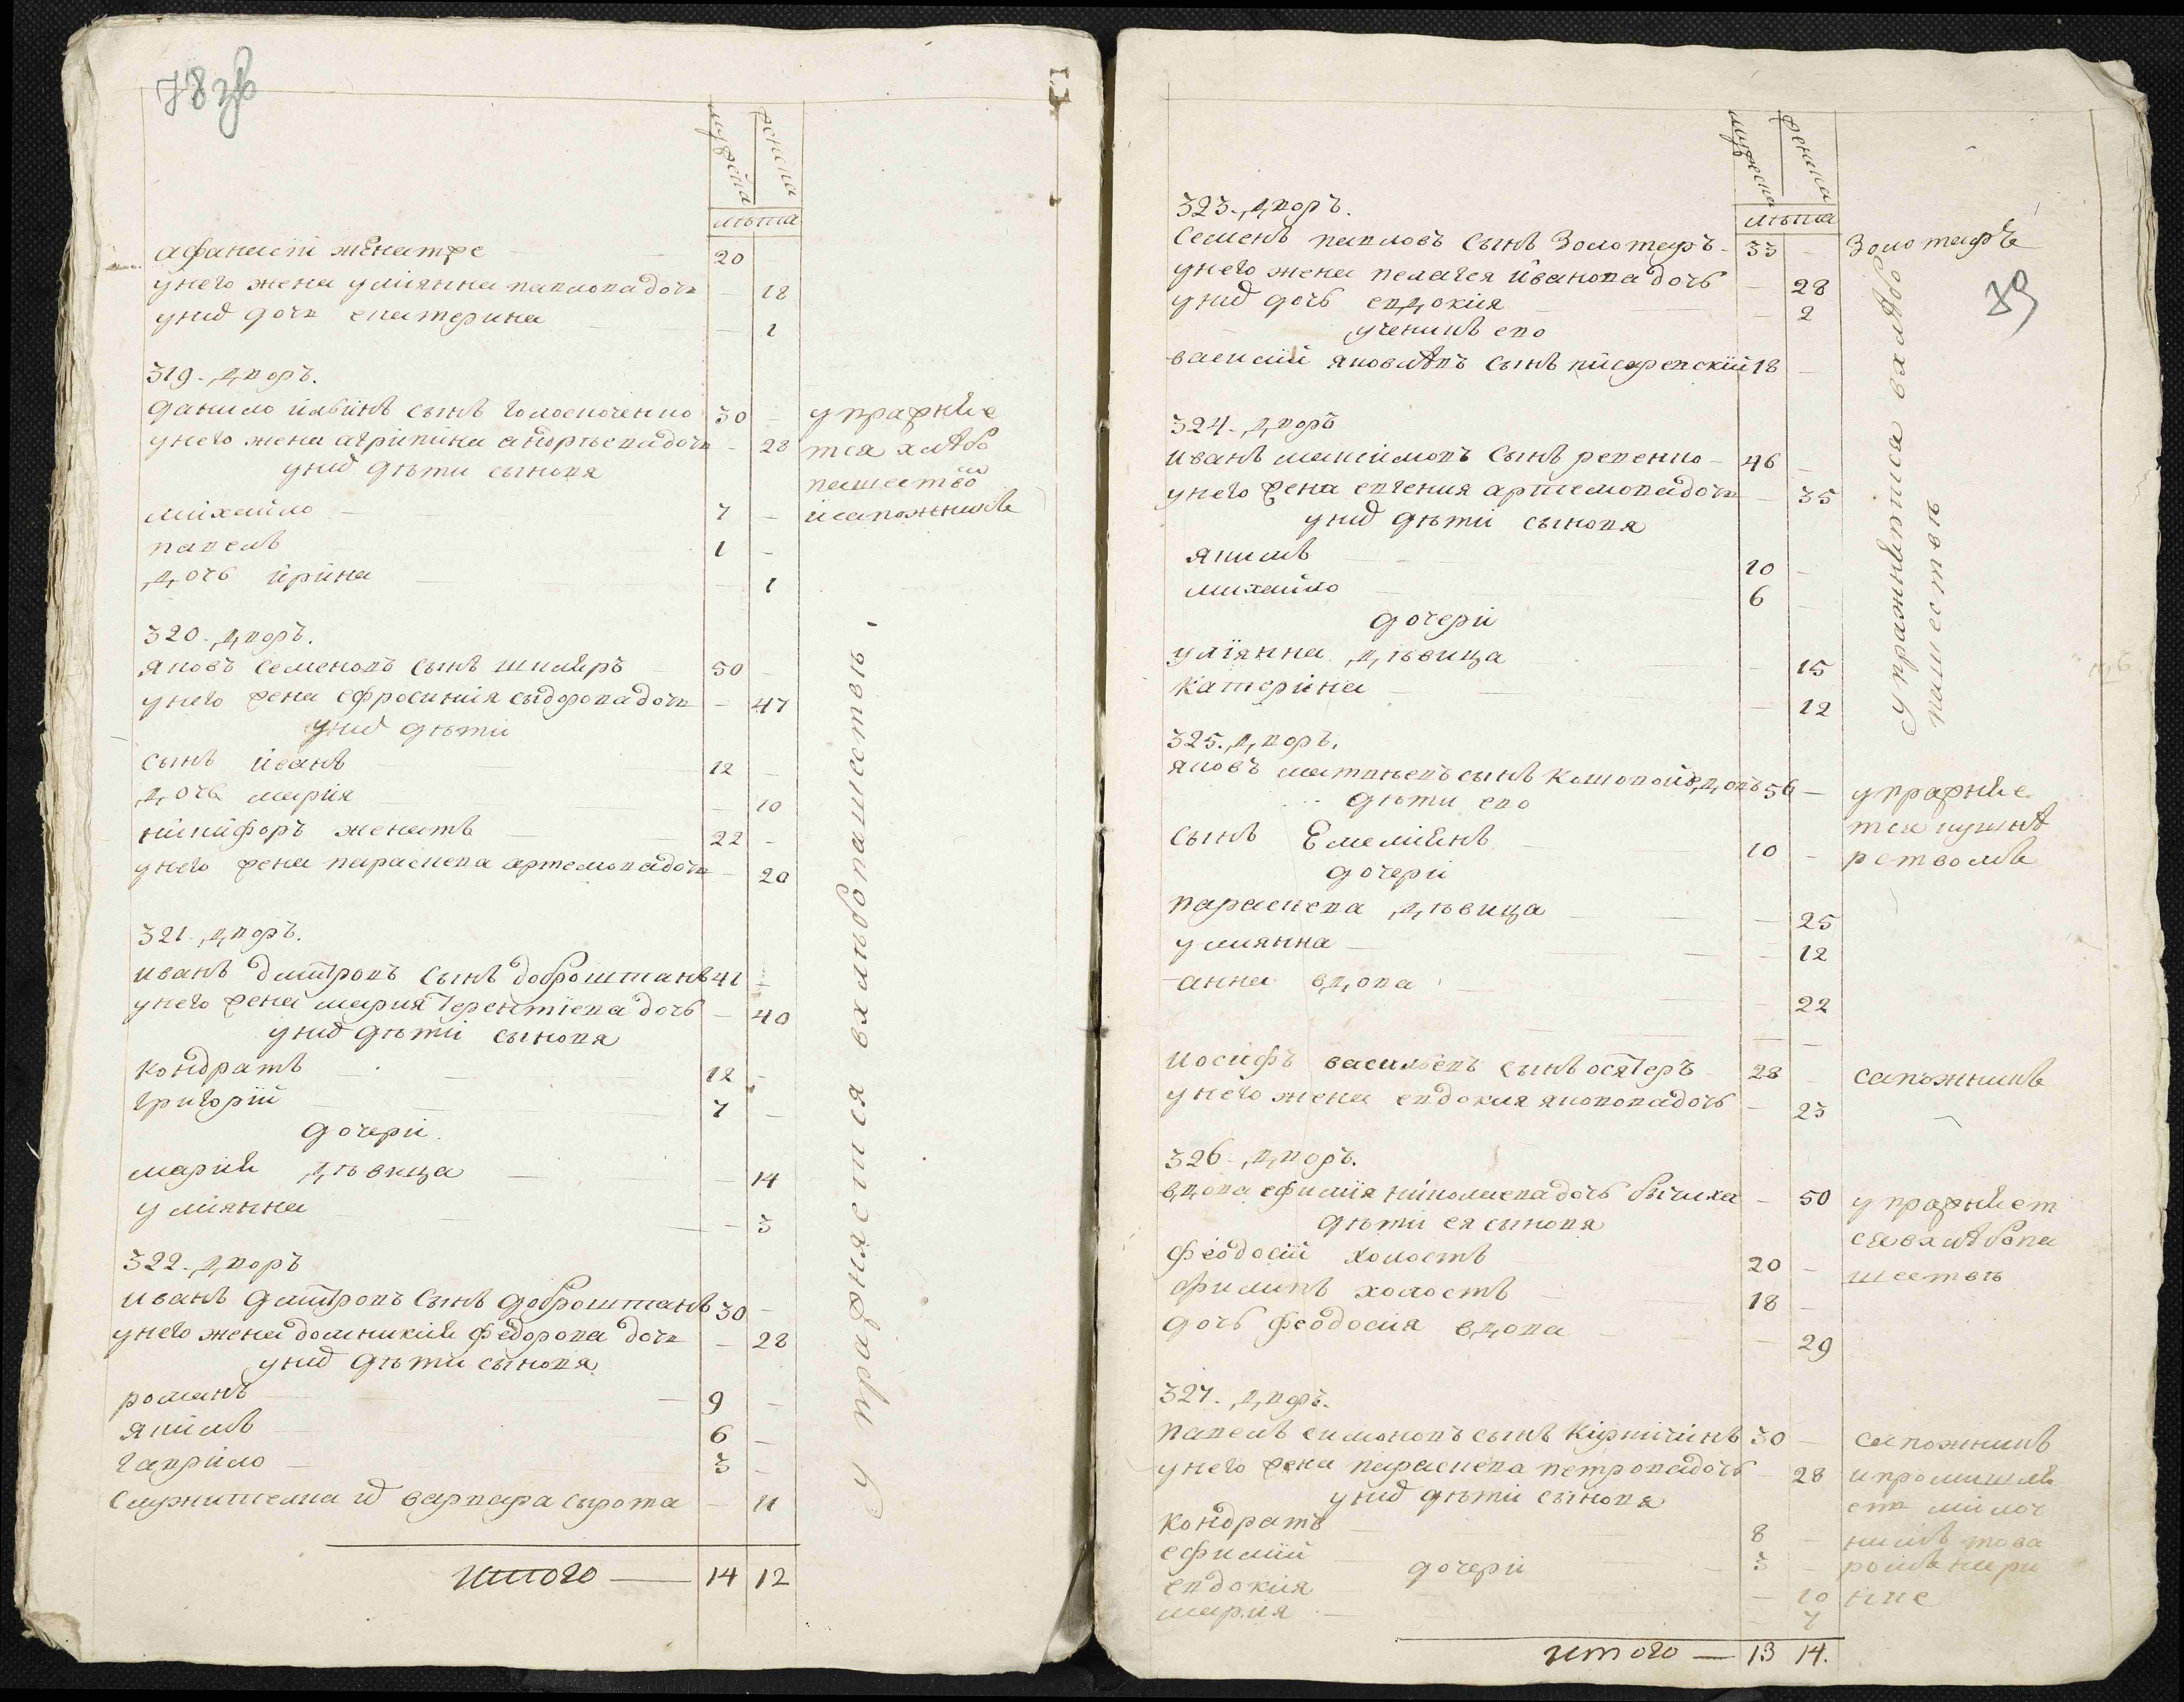 78 зв
мужеска
женска
лѣта
афанасїй женатже 20
унего жена улїянна павлова дочь 18
унихъ дочь екатерина 1
319. дворъ.
данило ильинъ сынъ голоскоченко 30 упражнѣе
унего жена агрипина андрѣева дочь 28 тся хлѣбо
унихъ дѣти сыновя пашество
михайло 7 исапожникъ
павелъ 1
дочь ирина 1
320. дворъ.
яковъ семеновъ сынъ шкляръ 50
унего жена ефросинїя сыдорова дочь 47
унихъ дѣти
сынъ иванъ 12
дочь марїя 10
никифоръ женатъ 22
унего жена параскева артемова дочь 20
321. дворъ.
иванъ дмитровъ сынъ доброштанъ 41
унего жена мария терентїева дочь 40
унихъ дѣтї сыновя
кондратъ 12
григорїй 7
дочери
марїя дѣвица 14
улїянна 3
322. дворъ
иванъ дмитровъ сынъ доброштанъ 30
унего жена домникия федорова дочь 28
унихъ дѣти сыновя
романъ 9
якимъ 6
гаврило 3
служителка ихъ варвара сырота 11
итого 14 12
упражняется вхлѣбопашествѣ
79
мужеска
женска
лѣта
323. дворъ.
Семенъ павловъ сынъ Золотаръ 33 Золотаръ
унего жена пелагея иванова дочь 28
унихъ дочь евдокия 2
ученикъ ево
василїй яковлѣвъ сынъ писаревскїй 18
324. дворъ
иванъ максимовъ сынъ ревенко 46
унего жена евгения артемова дочь 35
унихъ дѣтї сыновя
якимъ 10
михайло 6
дочерї
улїянна дѣвица 15
катерина 12
упражняются вхлѣбо
пашествѣ
325. дворъ.
яковъ матвѣевъ сынъ кошовой вдовъ 56 упражнѣе
дѣти ево тся кушнѣ
сынъ Емелїянъ 10 рствомъ
дочерї
параскева дѣвица 25
улиянна 12
анна вдова 22
иосифъ васильевъ сынъ осятеръ 28 сапожникъ
унего жена евдокия яковова дочь 23
326. дворъ.
вдова ефимїя николаева дочь бычиха 50 упражняет
дѣти ея сыновя сявхлѣбопа
феодосїй холостъ 20 шествѣ
филипъ холостъ 18
дочь феодосия вдова 29
327. дворъ.
павелъ симоновъ сынъ кїрпичїнъ 30 сапожникъ
унего жена параскева петрова дочь 28 ипромишля
унихъ дѣтї сыновя етъ мїлоч
кондратъ 8 нимъ това
ефимїй 3 ромъ
дочерї
евдокия 10
мария 7
итого 13 14.